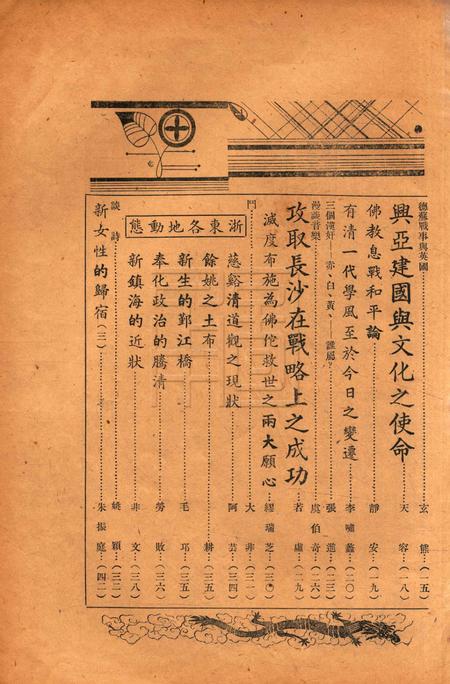 德蘇戰事與英國……玄熊（一五）
興亞建國與文化之使命……天容（一八）
佛教息戰和平論……靜安（一九）
有清一代學風至於今日之變遷……李嘯盦（二〇）
三個漢奸——赤、白、黃、——誰屬？……張進（二三）
漫談音樂……虞伯奇（二六）
攻取長沙在戰略上之成功……若虛（二九）
滅度布施為佛佗救世之兩大願心……繆瑞芝（三〇）
鬥……大非（三一）
浙東各地動態
慈谿清道觀之現狀……阿芸（三四）
餘姚之土布……耕（三五）
新生的鄞江橋……毛邛（三五）
奉化政治的騰清……勞敗（三六）
新鎮海的近狀……非文（三八）
談詩……姚穎（三二）
新女性的歸宿（三）……朱振庭（四二）